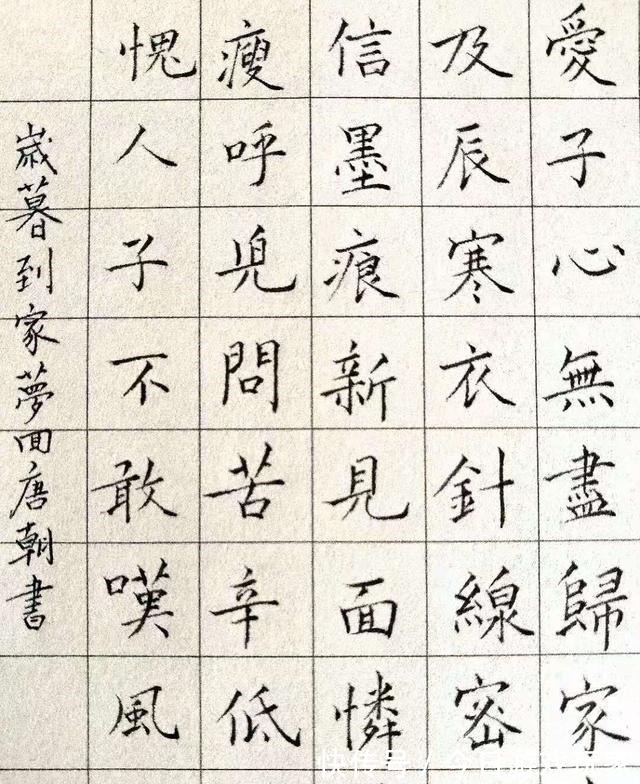 愛子心無盡歸家
及辰寒衣針線密
信墨痕新見面憐
瘦呼兒問苦辛低
愧人子不敢嘆風
歲暮到家夢回唐朝書